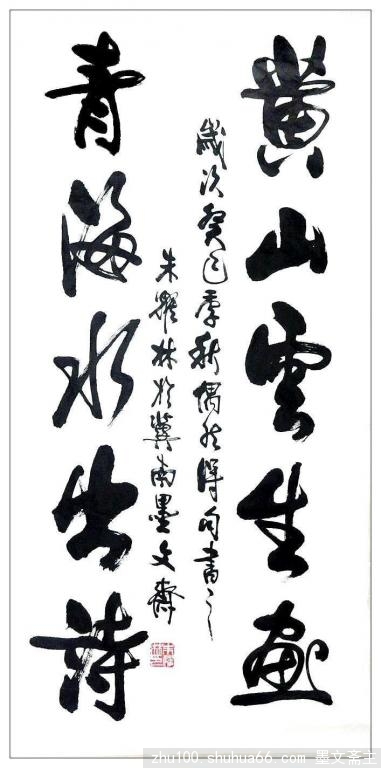 黄山雲生畫
歲次癸巳季秋偶然得句書之
朱耀林於冀南墨文齋
青海水出詩
zhu100.shuhua66.com 墨文斋主